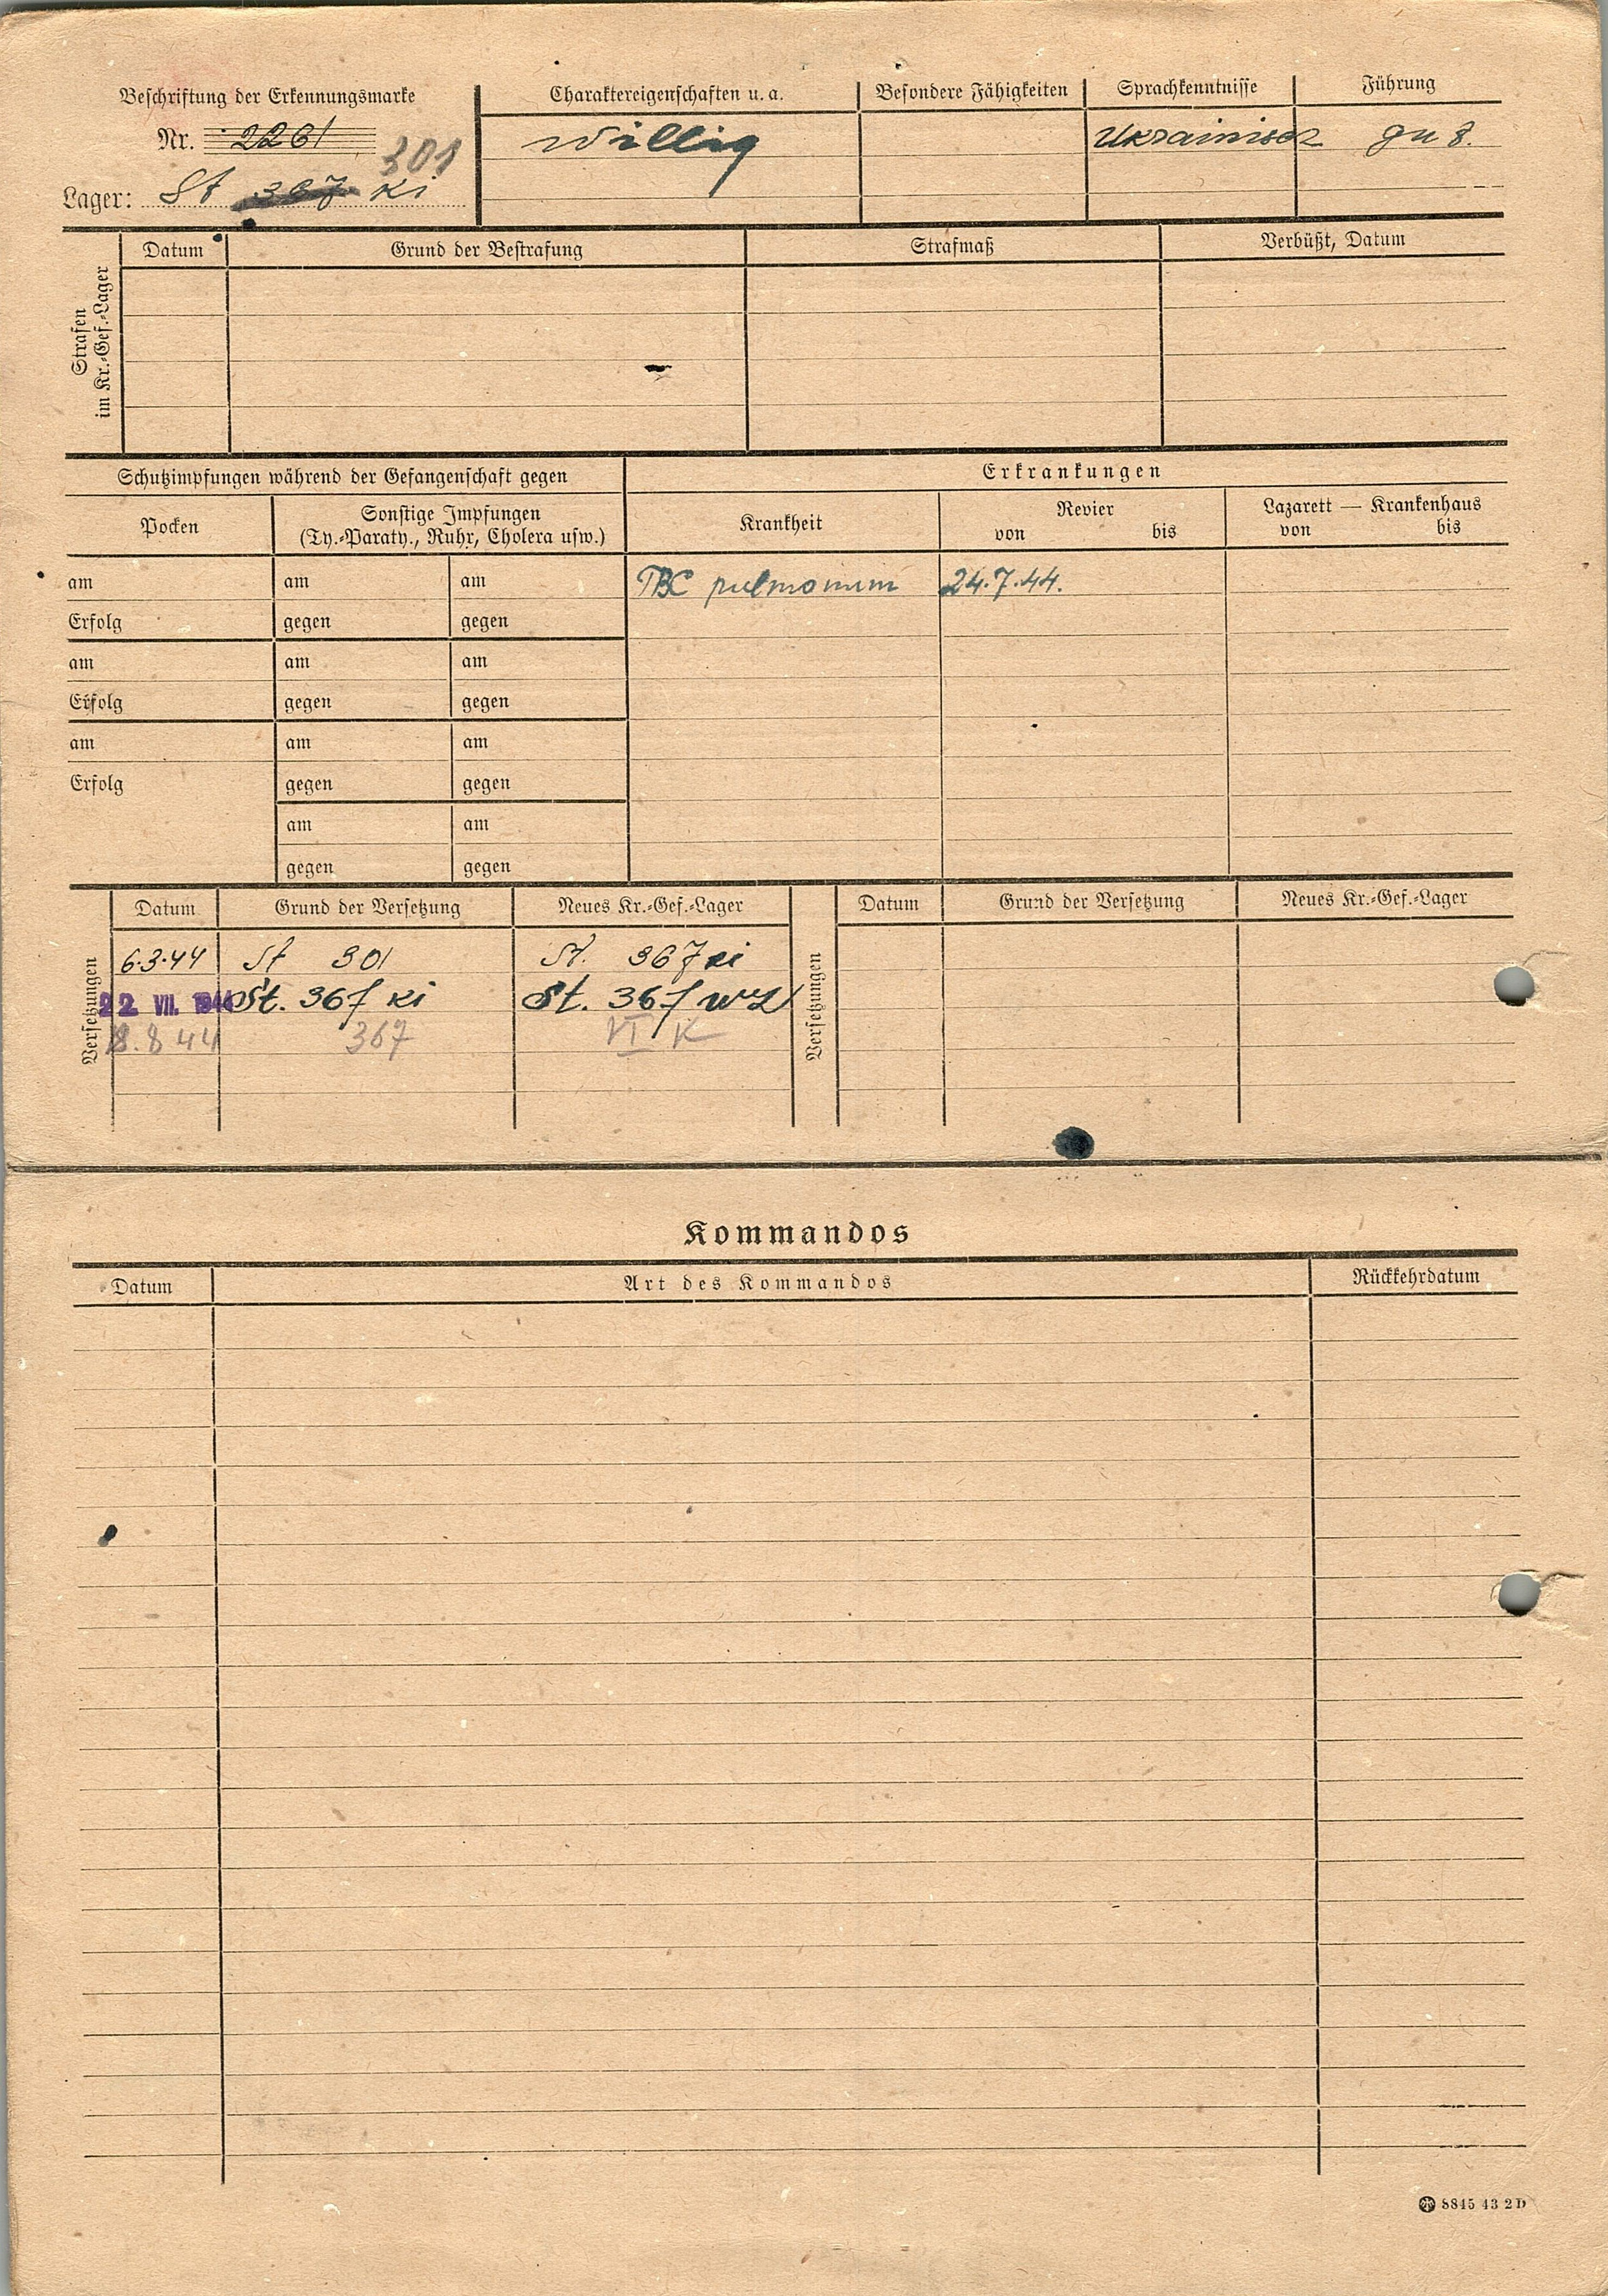 Beschriftung der Erkennungsmarke
Nr. 2261
301
Lager: St 367 Ki
Charaktereigenschaften u. a.
willig
Besondere Fähigkeiten
Sprachkenntnisse
Ukrainisch
Führung
gut.
Strafen im Kr.-Gef.-Lager
Datum
Grund der Bestrafung
Strafmaß
Verbüßt, Datum
Schutzimpfungen während der Gefangenschaft gegen
Erkrankungen
Pocken
Sonstige Impfungen
(Ty.-Paraty., Ruhr, Cholera usw.)
Krankheit
Revier
von bis
Lazarett — Krankenhaus
von bis
am am am
TBC pulmonum 24.7.44.
Erfolg gegen gegen
am am am
Erfolg gegen gegen
am am am
Erfolg gegen gegen
am am
gegen gegen
Versetzungen
Datum Grund der Versetzung Neues Kr.-Gef.-Lager
6.3.44 St 301 St. 367 Ki
22 VII. 1944 St. 367 Ki St. 367 WL
8.8 44 367 VI K
Versetzungen
Datum Grund der Versetzung Neues Kr.-Gef.-Lager
Kommandos
Datum Art des Kommandos Rückkehrdatum
8845 43 2 D